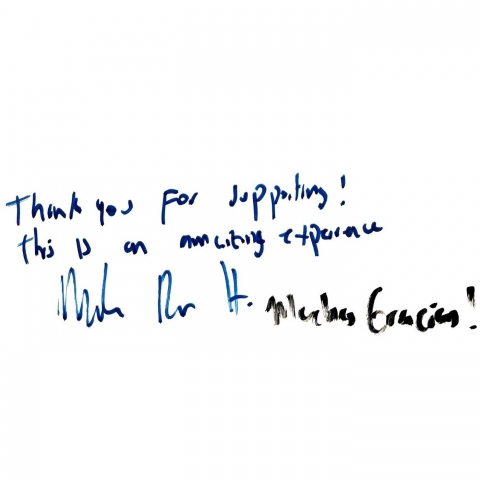 Thank you for supporting!
this is an amaizing experience
H. Muchas Gracias!